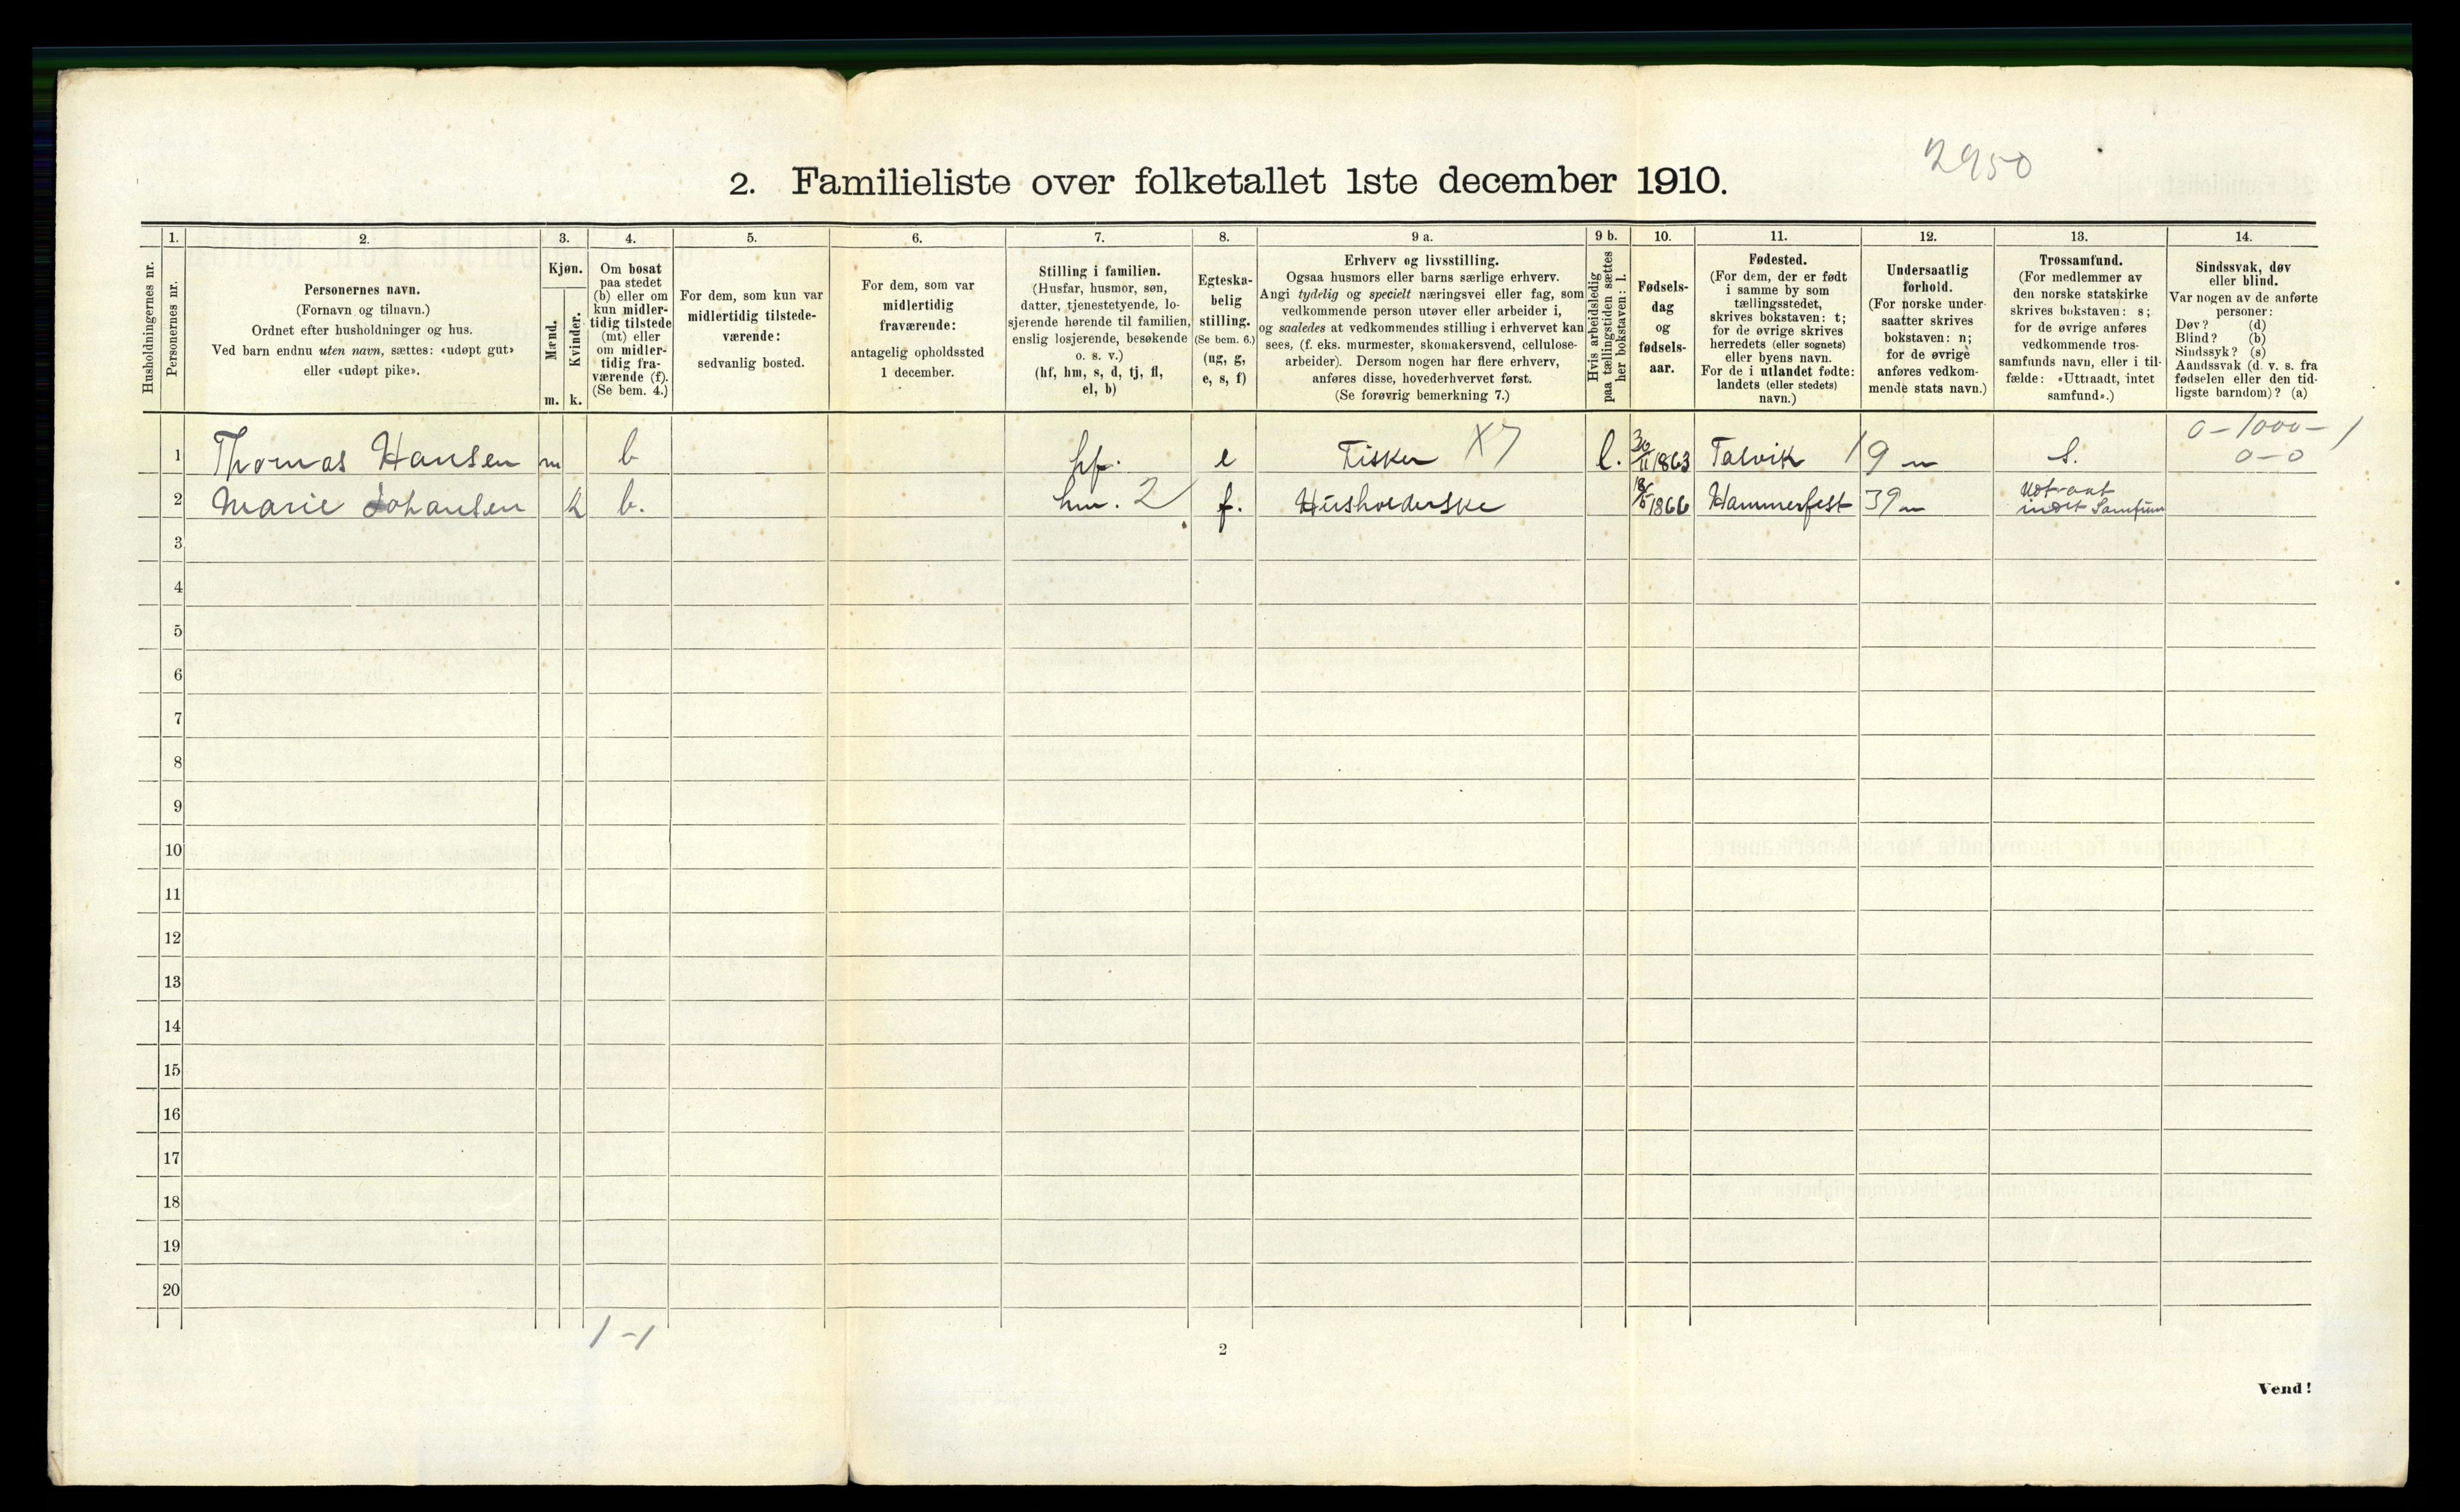 2950
2. Familieliste over folketallet 1ste december 1910.
Husholdningernes nr.
1.
Personernes nr.
2.
Personernes navn.
(Fornavn og tilnavn.)
Ordnet efter husholdninger og hus.
Ved barn endnu uten navn, sættes: «udøpt gut»
eller «udøpt pike».
3.
Kjøn.
Mænd.
Kvinder.
m. k.
4.
Om bosat
paa stedet
(b) eller om
kun midler-
tidig tilstede
(mt) eller
om midler-
tidig fra-
værende (f).
(Se bem. 4.)
5.
For dem, som kun var
midlertidig tilstede-
værende:
sedvanlig bosted.
6.
For dem, som var
midlertidig
fraværende:
antagelig opholdssted
1 december.
7.
Stilling i familien.
(Husfar, husmor, søn,
datter, tjenestetyende, lo-
sjerende hørende til familien,
enslig losjerende, besøkende
o. s. v.)
(hf, hm, s, d, tj, fl,
el, b)
8.
Egteska-
belig
stilling.
(Se bem. 6.)
(ug, g,
e, s, f)
9 a.
Erhverv og livsstilling.
Ogsaa husmors eller barns særlige erhverv.
Angi tydelig og specielt næringsvei eller fag, som
vedkommende person utøver eller arbeider i,
og saaledes at vedkommendes stilling i erhvervet kan
sees, (f. eks. murmester, skomakersvend, cellulose-
arbeider). Dersom nogen har flere erhverv,
anføres disse, hovederhvervet først.
(Se forøvrig bemerkning 7.)
9 b.
Hvis arbeidsledig
paa tællingstiden sættes
her bokstaven: l.
10.
Fødsels-
dag
og
fødsels-
aar.
11.
Fødested.
(For dem, der er født
i samme by som
tællingsstedet,
skrives bokstaven: t;
for de øvrige skrives
herredets (eller sognets)
eller byens navn.
For de i utlandet fødte:
landets (eller stedets)
navn.)
12.
Undersaatlig
forhold.
(For norske under-
saatter skrives
bokstaven: n;
for de øvrige
anføres vedkom-
mende stats navn.)
13.
Trossamfund.
(For medlemmer av
den norske statskirke
skrives bokstaven: s;
for de øvrige anføres
vedkommende tros-
samfunds navn, eller i til-
fælde: «Uttraadt, intet
samfund».)
14.
Sindssvak, døv
eller blind.
Var nogen av de anførte
personer:
Døv? (d)
Blind? (b)
Sindssyk? (s)
Aandssvak (d. v. s. fra
fødselen eller den tid-
ligste barndom)? (a)
0-1000-1
0-0
1 Thomas Hansen m b hf. e Fisker X7 l. 30/11 1863 Talvik 19 n s.
2 Marie Johansen k b. hm. 2 f. Husholderske 18/5 1866 Hammerfest 39 n Udtraat
intet Samfun
3
4
5
6
7
8
9
10
11
12
13
14
15
16
17
18
19
20
1-1
2
Vend!